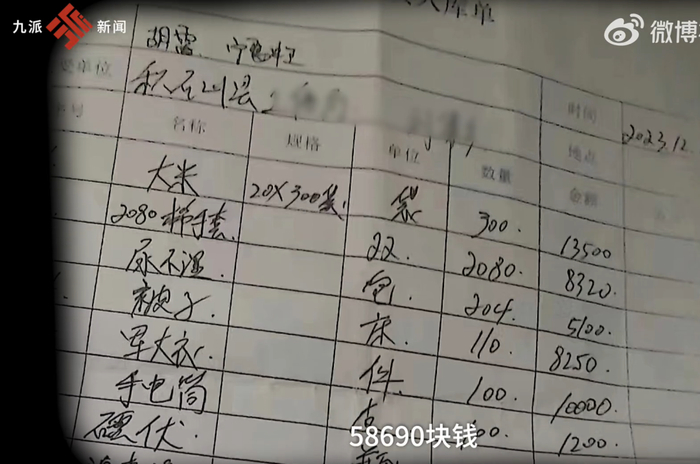 九派 新闻
微博
入库单
胡雷
单位 积石山县
时间 2023.12
号 名称 规格 单位 数量 地点 金额
大米 20X300袋 袋 300. 13500
2080 手套 双 2080. 8320
尿不湿 包 204. 5100
被子 床 110 8250
军大衣 件 100 10000
手电筒 1200
碘伏
58690块钱